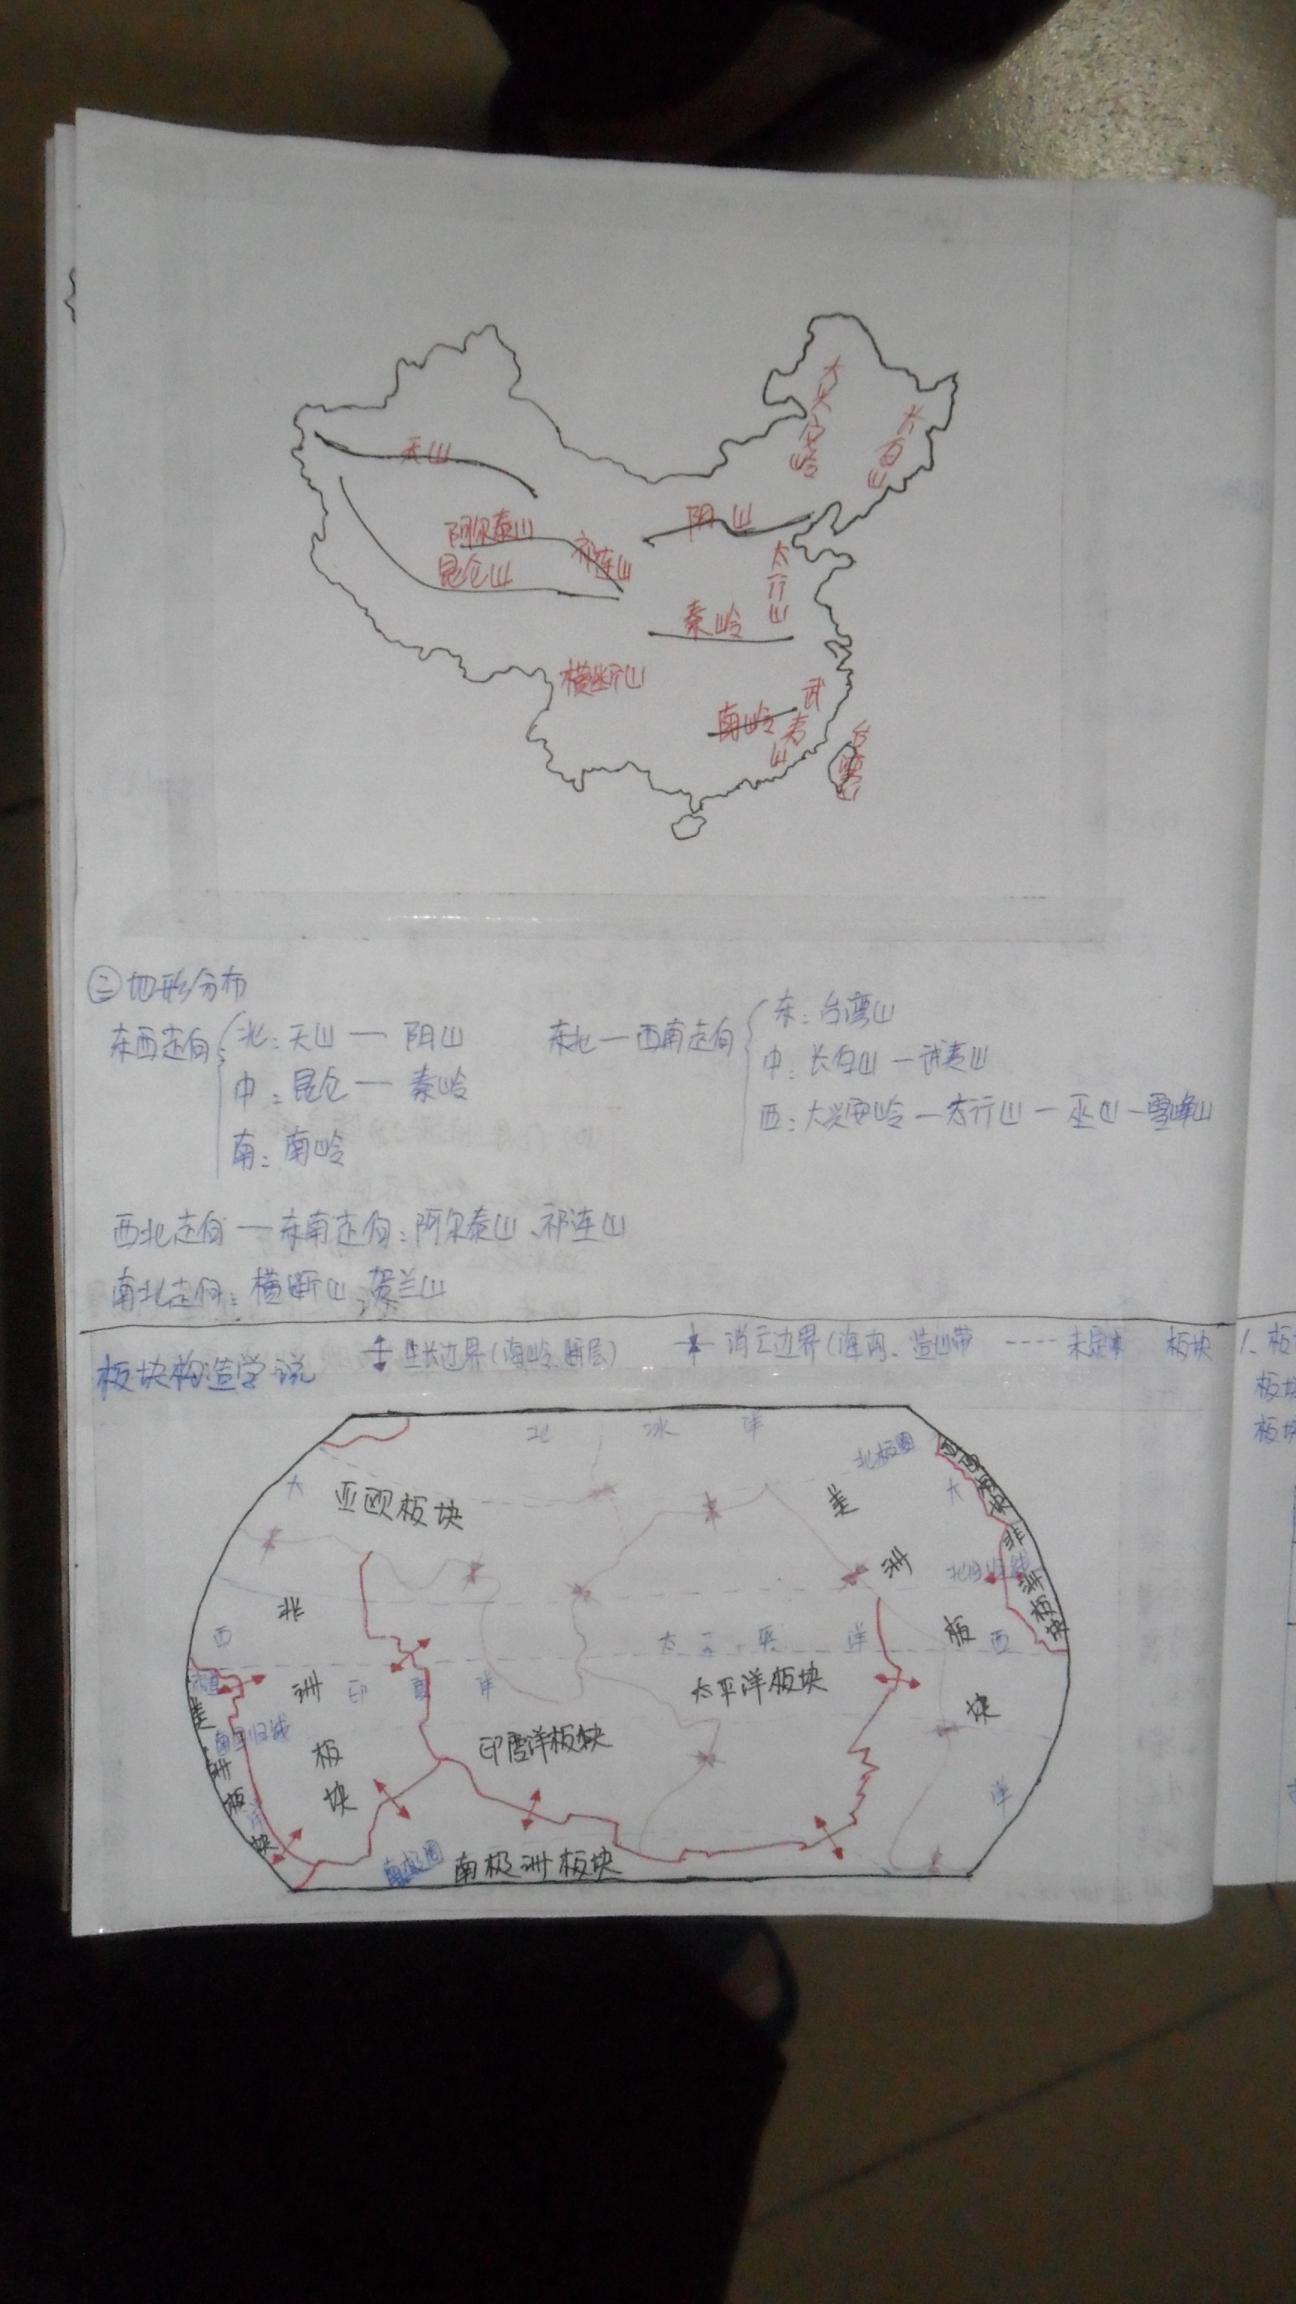 大兴安岭
长白山
天山
阴山
阿尔泰山
祁连山
昆仑山
太行山
秦岭
横断山
武夷山
南岭
台湾山
②地形分布
东西走向 北：天山 — 阴山
中：昆仑 — 秦岭
南：南岭
东北—西南走向 东：台湾山
中：长白山—武夷山
西：大兴安岭—太行山—巫山—雪峰山
西北走向—东南走向：阿尔泰山、祁连山
南北走向：横断山，贺兰山
板块构造学说
生长边界(海岭、断层)
消亡边界(海沟、造山带
---- 未定
板块
1、板
板块
板块
北冰洋
北极圈
亚欧板块
美洲板块
非洲板块
北回归线
大西洋
非洲板块
太平洋
太平洋板块
印度洋
印度洋板块
南回归线
美洲板块
大西洋
南极圈
南极洲板块